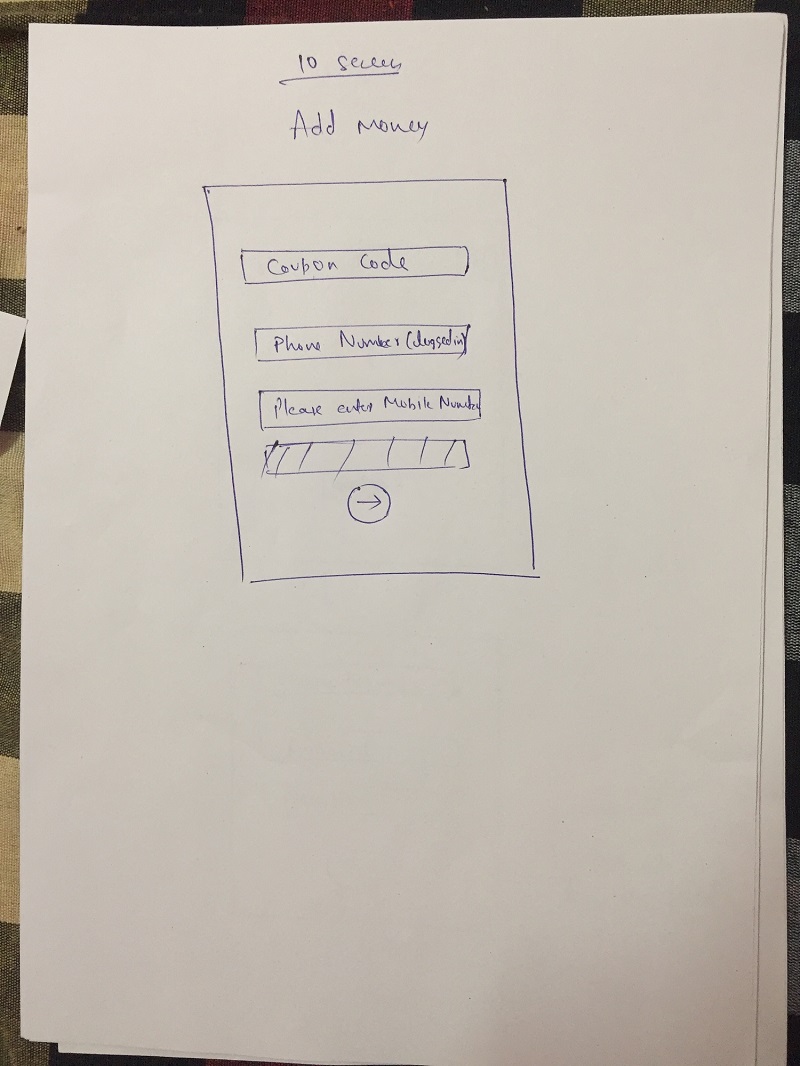 10 screen
Add Money
Coupon Code
Phone Number (logged in)
Please enter Mobile Number
→